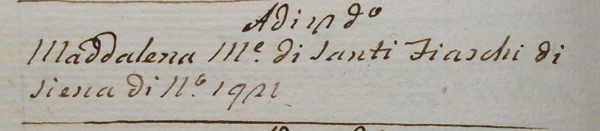 Adi 17 dº
Maddalena Mᵉ. di Santi Fiaschi di
Siena di N.º